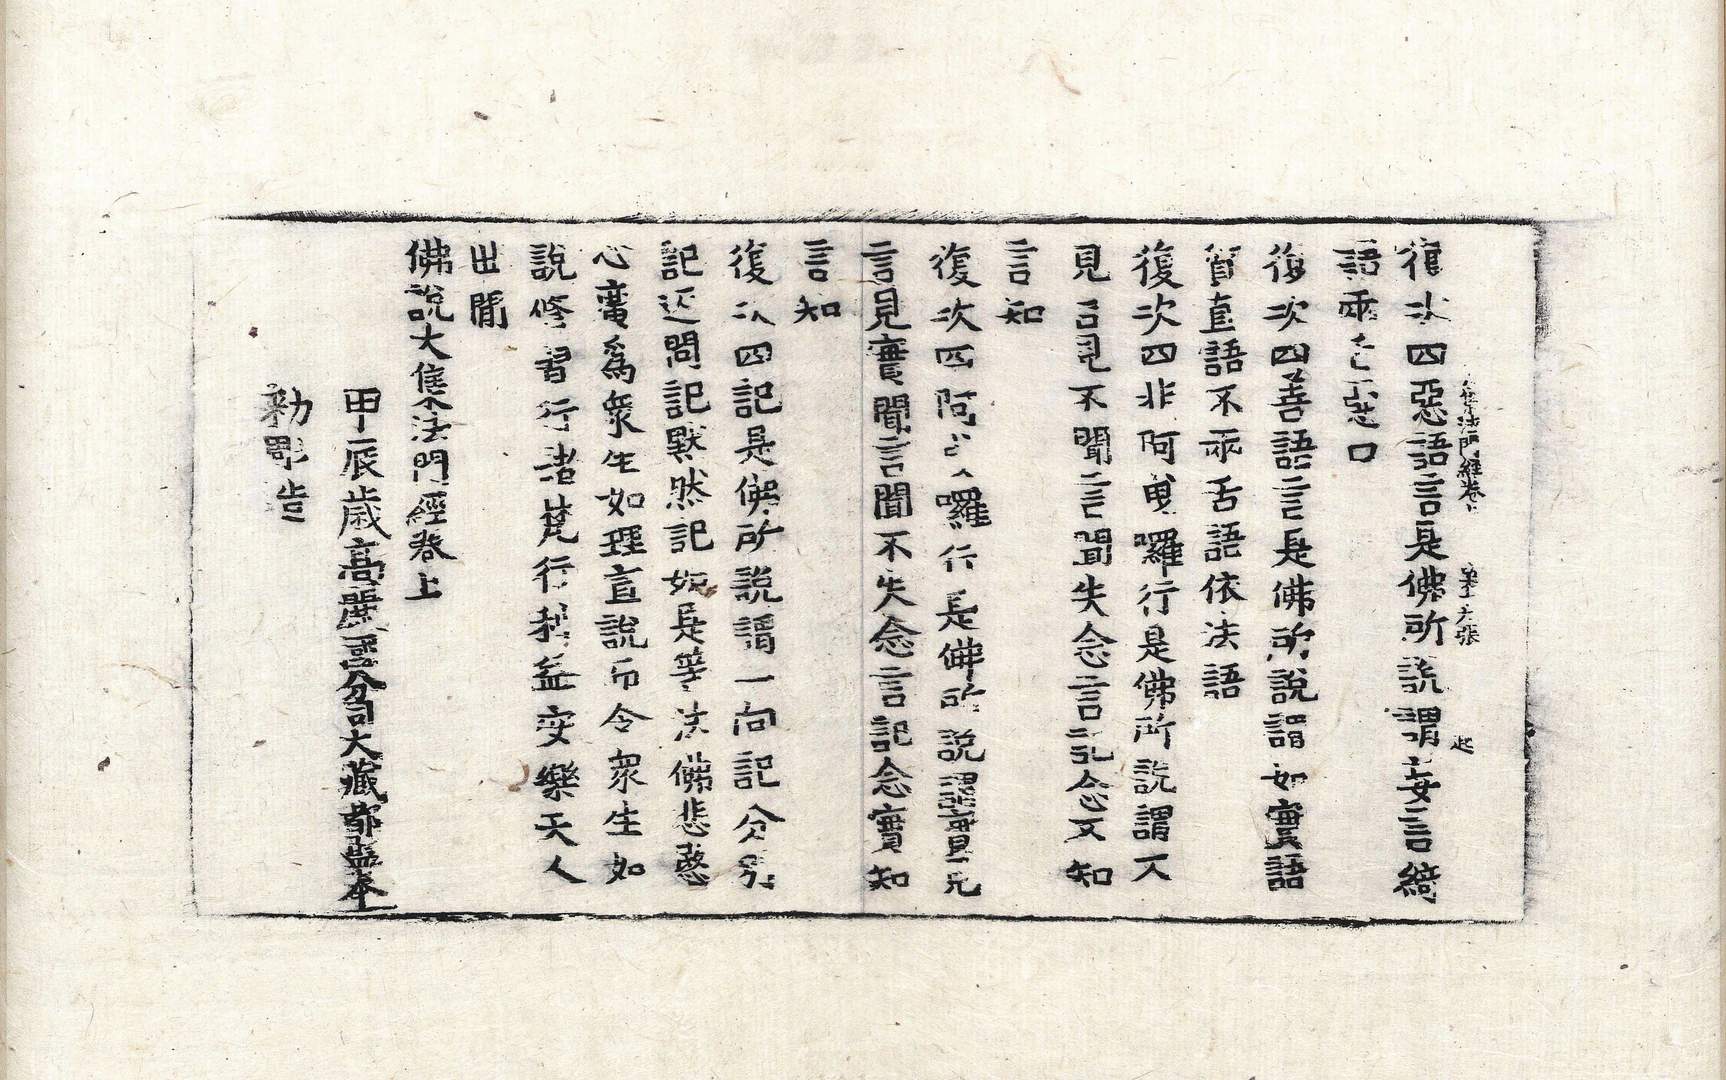 集法門經卷上 第十六張 起
復次四惡語言是佛所說謂妄言綺
語兩舌惡口
復次四善語言是佛所說謂如實語
質直語不兩舌語依法語
復次四非阿曳囉行是佛所說謂不
見言見不聞言聞失念言記念不知
言知
復次四阿曳囉行是佛所說謂實見
言見實聞言聞不失念言記念實知
言知
復次四記是佛所說謂一向記分別
記返問記默然記如是等法佛悲愍
心廣爲衆生如理宣說而令衆生如
說修習行諸梵行利益安樂天人
世間
佛說大集法門經卷上
甲辰歲高麗國分司大藏都監奉
勅彫造